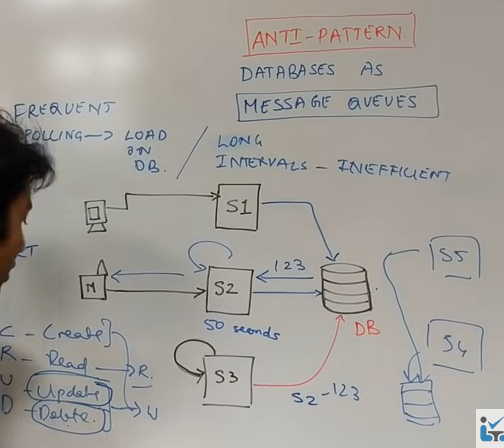 ANTI-PATTERN.
DATABASES AS
MESSAGE QUEUES
FREQUENT
POLLING → LOAD
ON
DB.
LONG
INTERVALS - INEFFICIENT
S1
S5
123
M
S2
50 seconds
DB
S4
C - Create
R - Read → R.
U - Update
D - Delete → W
S3
S2-123